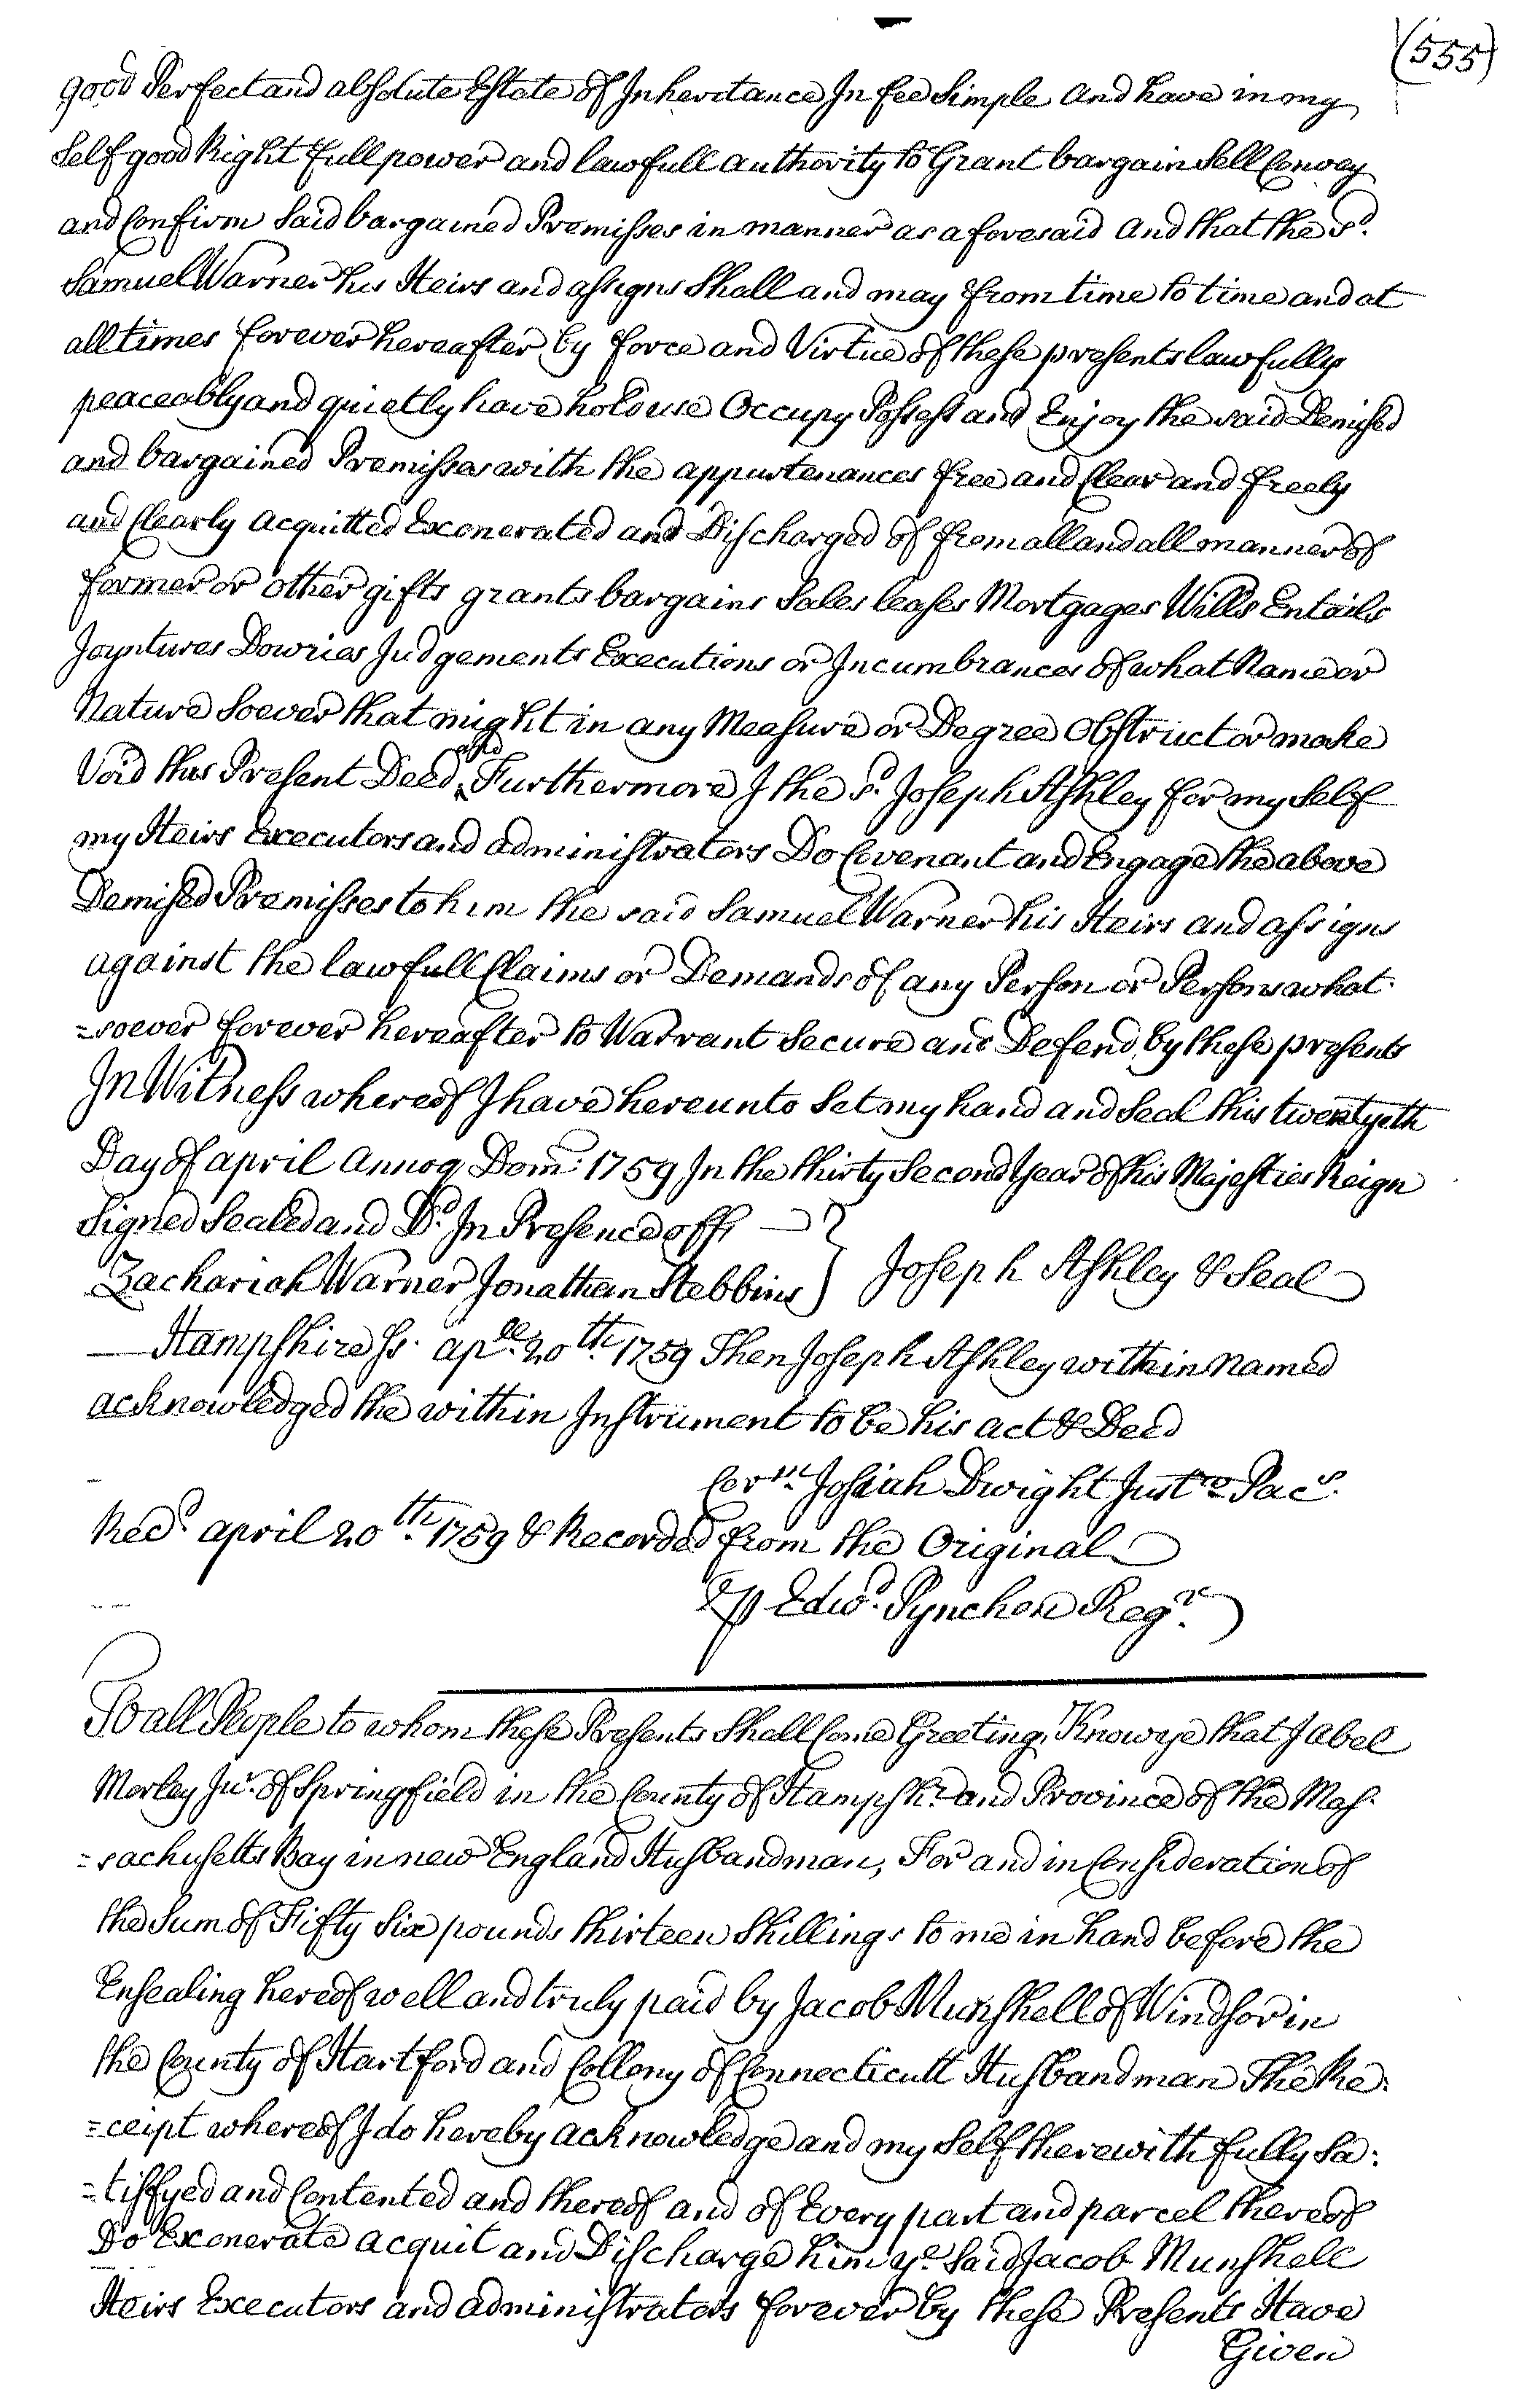 (555)
good Perfect and absolute Estate of Inheritance In fee Simple And have in my
Self good Right full power and lawfull authority to Grant bargain Sell Convey
and Confirm Said bargained Premisses in manner as aforesaid And that the sd.
Samuel Warner his Heirs and assigns Shall and may from time to time and at
all times forever hereafter by force and Virtue of these presents lawfully
peaceably and quietly have hold use Occupy Possess and Enjoy the said Demised
and bargained Premisses with the appurtenances free and Clear and freely
and Clearly Acquitted Exonerated and Discharged of from all and all manner of
former or other gifts grants bargains Sales leases Mortgages Wills Entails
Joyntures Dowries Judgements Executions or Incumbrances of what Name or
Nature Soever that might in any Measure or Degree Obstruct or make
Void this Present Deed, and Furthermore I the sd. Joseph Ashley for my Self
my Heirs Executors and administrators Do Covenant and Engage the above
Demised Premisses to him the said Samuel Warner his Heirs and assigns
against the lawfull Claims or Demands of any Person or Persons what-
=soever forever hereafter to Warrant Secure and Defend by these presents
In Witness whereof I have hereunto Set my hand and Seal this twentyeth
Day of april Annoq Dom: 1759 In the thirty Second Year of his Majesties Reign
Signed Sealed and Dd. In Presence off
Zachariah Warner Jonathan Stebbins } Joseph Ashley & Seal
Hampshire Ss. apll. 20th. 1759 Then Joseph Ashley within Named
acknowledged the within Instrument to be his act & Deed
Corm. Josiah Dwight Justce Pacs.
Recd. april 20th. 1759 & Recorded from the Original
p Edwd. Pynchon Regr.
To all People to whom these Presents Shall Come Greeting, Know ye that I Abel
Morley Jur. of Springfield in the County of Hampshr. and Province of the Mas-
=sachusetts Bay in new England Husbandman, For and in Consideration of
the Sum of Fifty Six pounds thirteen Shillings to me in hand before the
Ensealing hereof well and truly paid by Jacob Munshell of Windsor in
the County of Hartford and Collony of Connecticutt Husbandman The Re:
=ceipt whereof I do hereby acknowledge and my Self therewith fully Sa:
=tisfyed and Contented and thereof and of Every part and parcel thereof
Do Exonerate acquit and Discharge him ye. Said Jacob Munshell
Heirs Executors and administrators forever by these Presents Have
Given